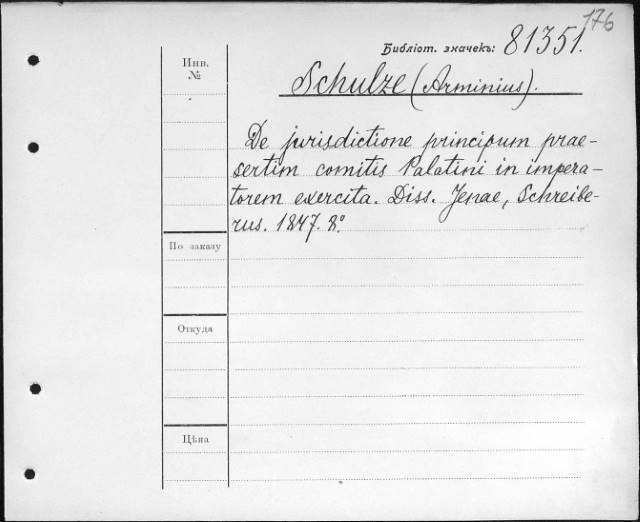 176
Библіот. значекъ: 81351.
Инв.
№
Schulze (Arminius).
De jurisdictione principum prae-
sertim comitis Palatini in impera-
torem exercita. Diss. Jenae, Schreibe-
rus. 1847. 8º.
По заказу
Откуда
Цѣна